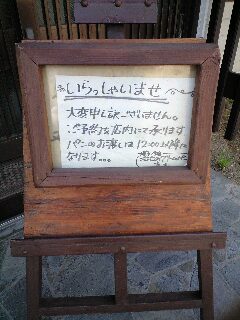 いらっしゃいませ
大変申し訳ございません。
ご予約は店内にて承ります
パンのお渡しは12:00以降に
なります…